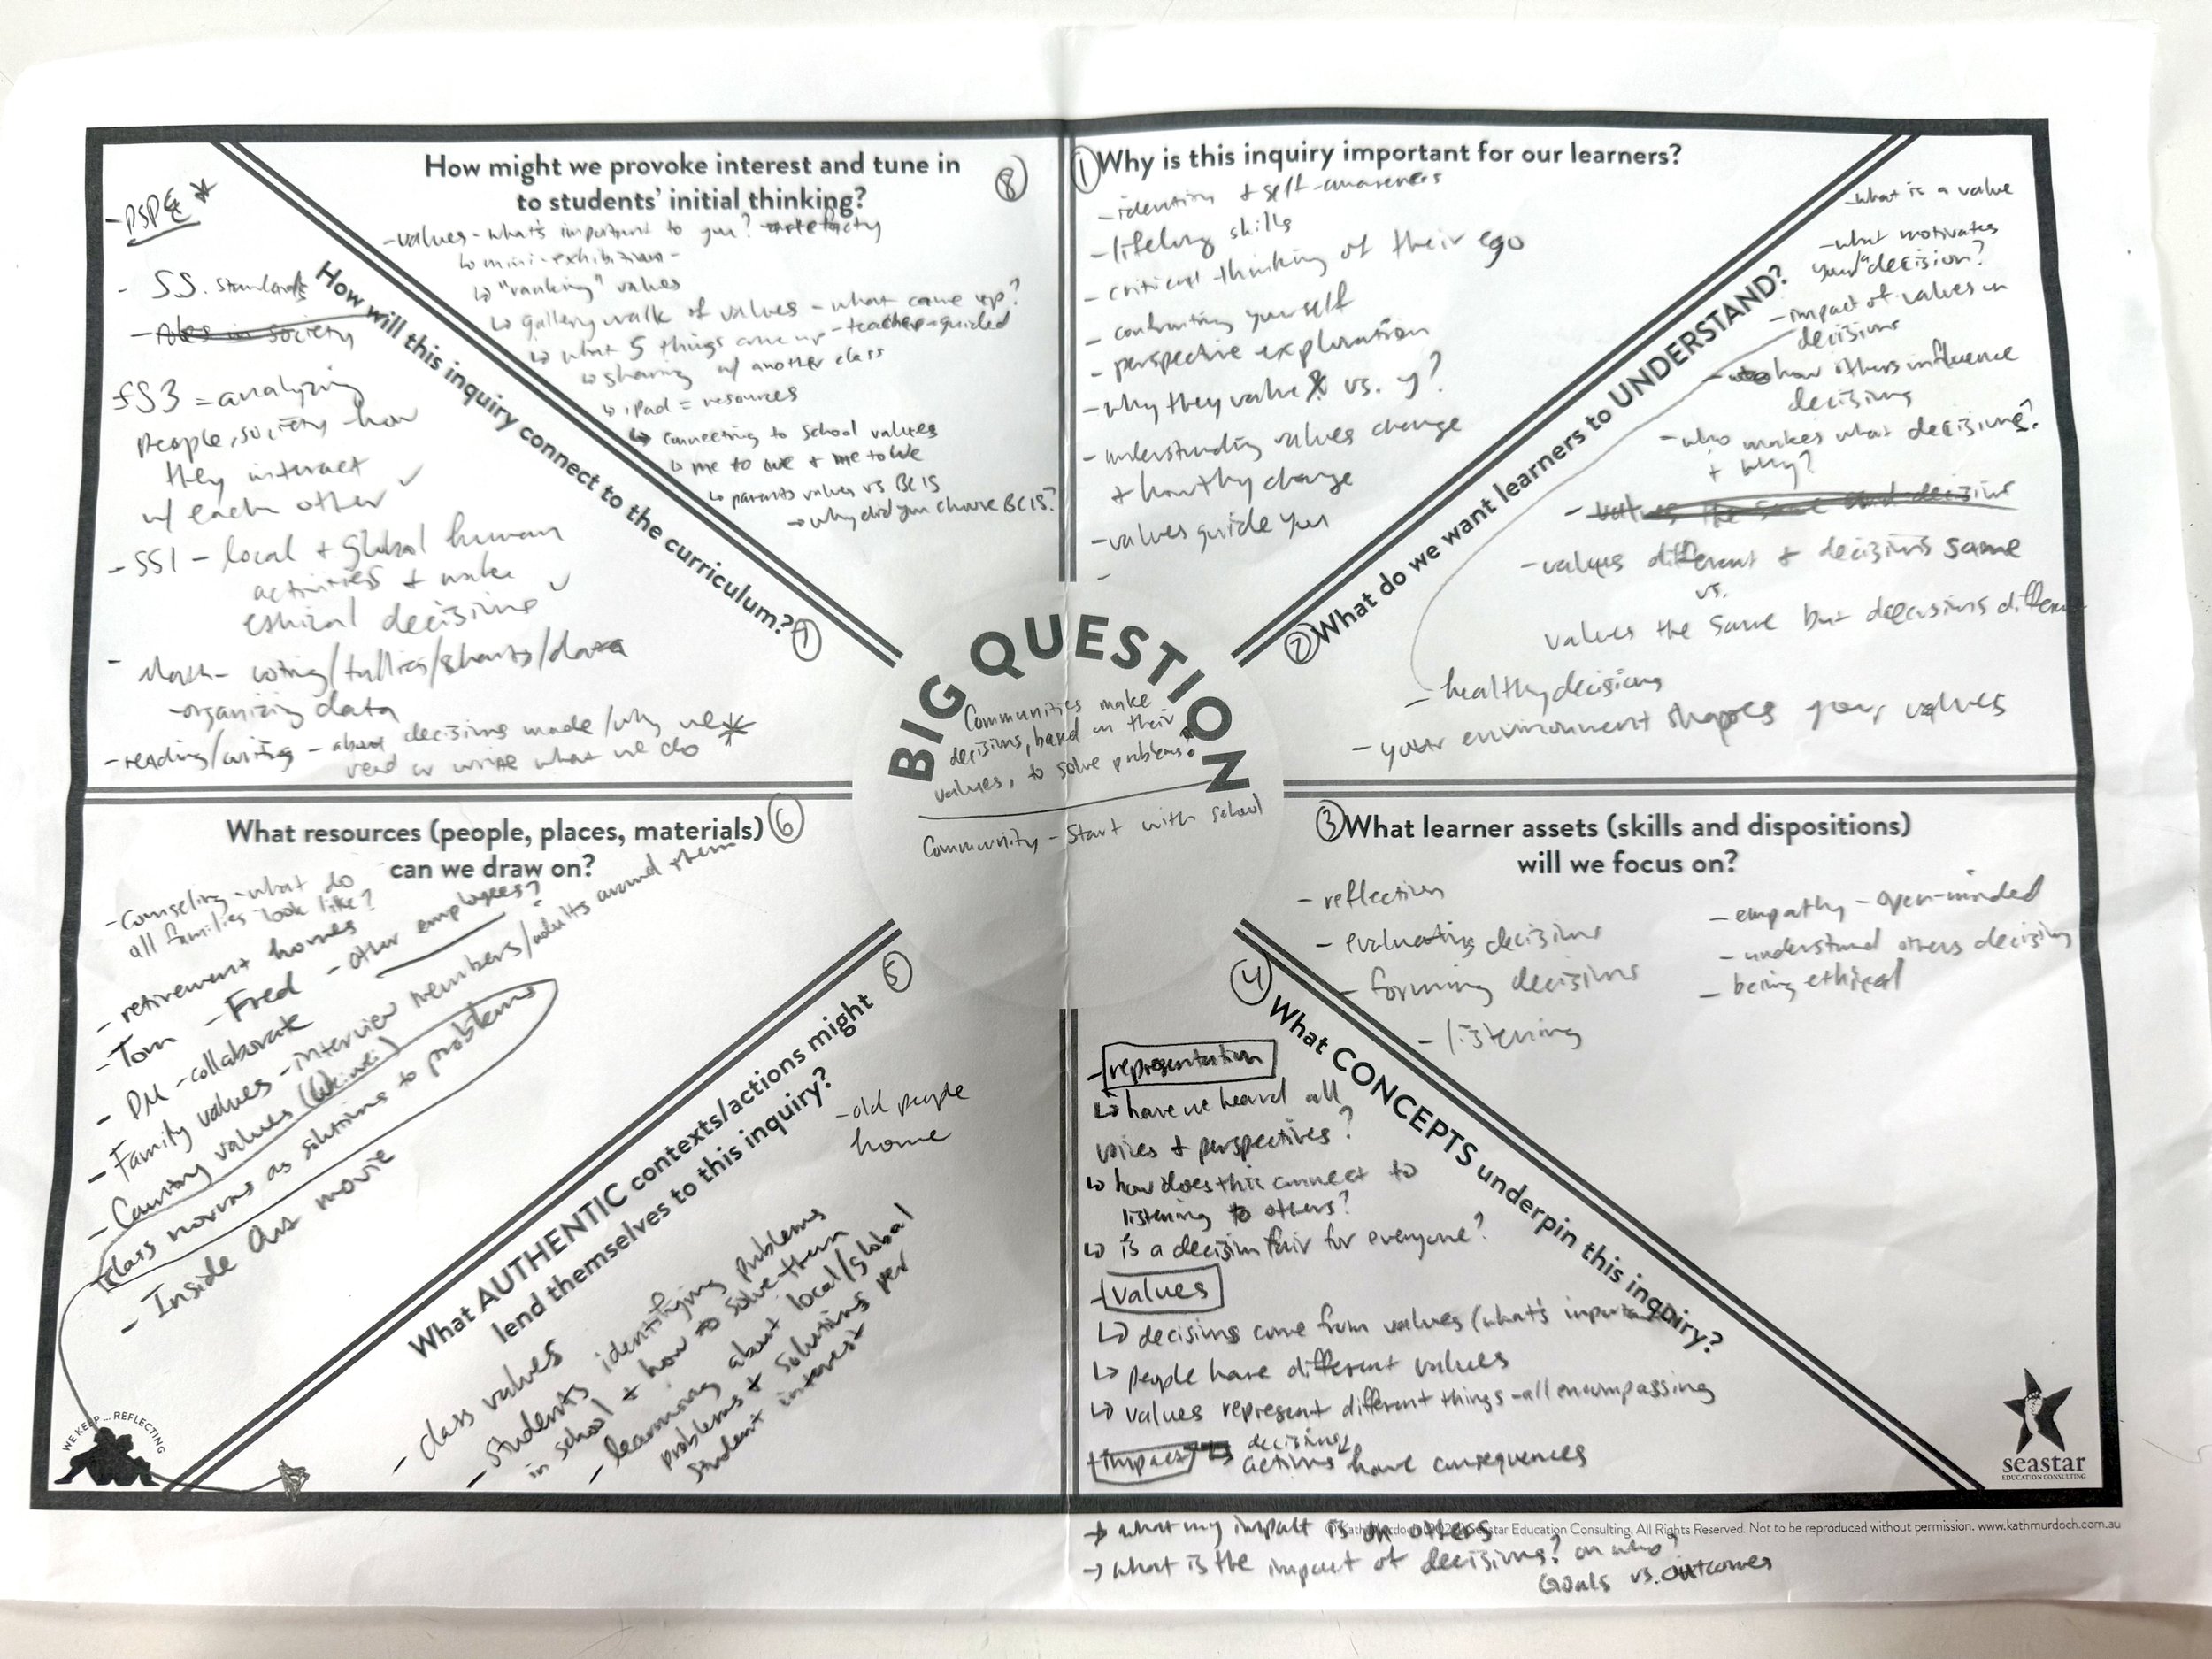 BIG QUESTION
Communities make
decisions, based on their
values, to solve problems?
Community - Start with school
① Why is this inquiry important for our learners?
- identity + self-awareness
- lifelong skills
- critical thinking of their ego
- confronting yourself
- perspective exploration
- why they value X vs. y?
- understanding values change
+ how they change
- values guide you
-
② What do we want learners to UNDERSTAND?
- what is a value
- what motivates
your "decision?
- impact of values in
decisions
- how others influence
decisions
- who makes what decisions?
+ why?
- values the same and decisions
- values different + decisions same
vs.
values the same but decisions different
- healthy decisions
- your environment shapes your values
③ What learner assets (skills and dispositions)
will we focus on?
- reflection
- evaluating decisions
- forming decisions
- listening
- empathy - open-minded
- understand others decisions
- being ethical
④ What CONCEPTS underpin this inquiry?
- representation
↳ have we heard all
voices + perspectives?
↳ how does this connect to
listening to others?
↳ is a decision fair for everyone?
- values
↳ decisions come from values (what's important
↳ people have different values
↳ values represent different things - all encompassing
- impact ↳ decisions
actions have consequences
→ what my impact is on others
→ what is the impact of decisions? on who?
Goals vs. outcomes
⑤ What AUTHENTIC contexts/actions might
lend themselves to this inquiry?
- old people
home
- class values
- students identifying problems
in school + how to solve them
- learning about local/global
problems + solutions per
student interest
⑥ What resources (people, places, materials)
can we draw on?
- Counseling - what do
all families look like?
- retirement homes
- Tom - Fred - other employees?
- DM - collaborate
- Family values - interview members/adults around them
- Country values
- Class norms as solutions to problems
- Inside Out movie
How will this inquiry connect to the curriculum? ⑦
- PSPE *
- S.S. standards
- roles in society
SS3 = analyzing
people, society - how
they interact
w/ each other ✓
- SS1 - local + global human
activities + make
ethical decisions ✓
- Math - voting/tallies/charts/data
- organizing data
- reading/writing - about decisions made/why we *
read or write what we do
How might we provoke interest and tune in ⑧
to students' initial thinking?
- values - what's important to you?
↳ mini-exhibition -
↳ "ranking" values
↳ gallery walk of values - what came up?
↳ what 5 things came up - teacher-guided
↳ sharing w/ another class
↳ iPad = resources
↳ connecting to school values
↳ me to we + me to We
↳ parents values vs BCIS
→ why did you choose BCIS?
WE KEEP... REFLECTING
seastar
EDUCATION CONSULTING
Seastar Education Consulting. All Rights Reserved. Not to be reproduced without permission. www.kathmurdoch.com.au